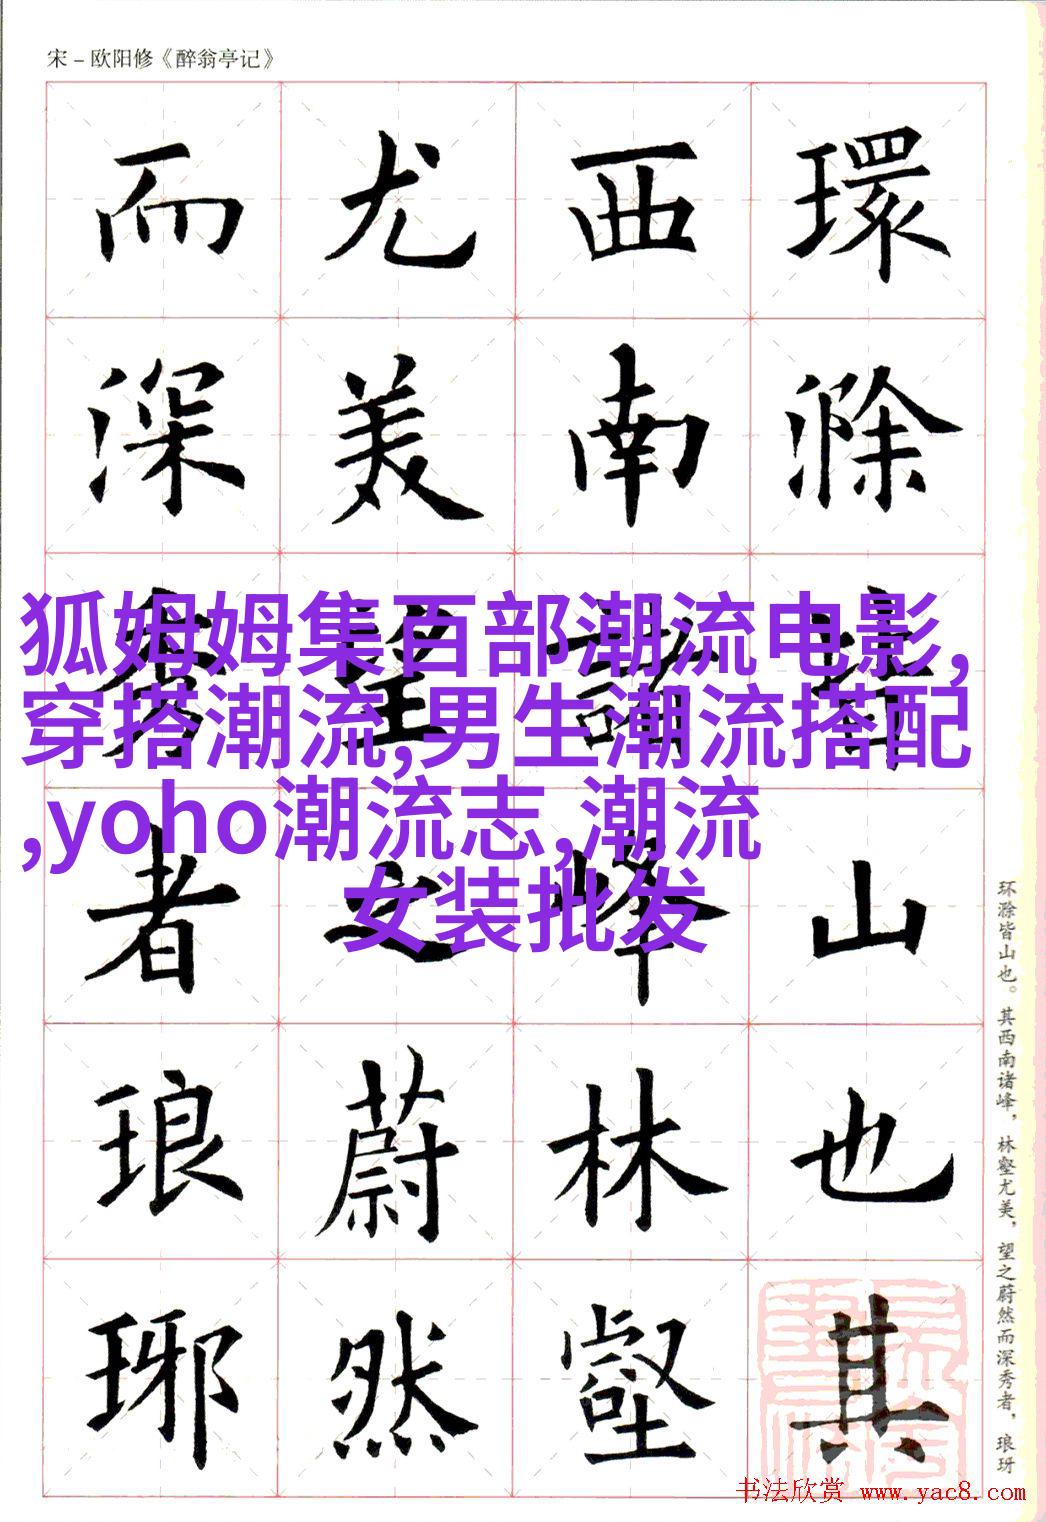 宋－欧阳修《醉翁亭记》
環滁皆山也其
西南諸峰林壑
尤美望之蔚然
而深秀者琅琊
狐姆姆集百部潮流电影,
穿搭潮流,男生潮流搭配
,yoho潮流志,潮流
女装批发
环滁皆山也。其西南诸峰，林壑尤美，望之蔚然而深秀者，琅玡
书法欣赏 www.yac8.com